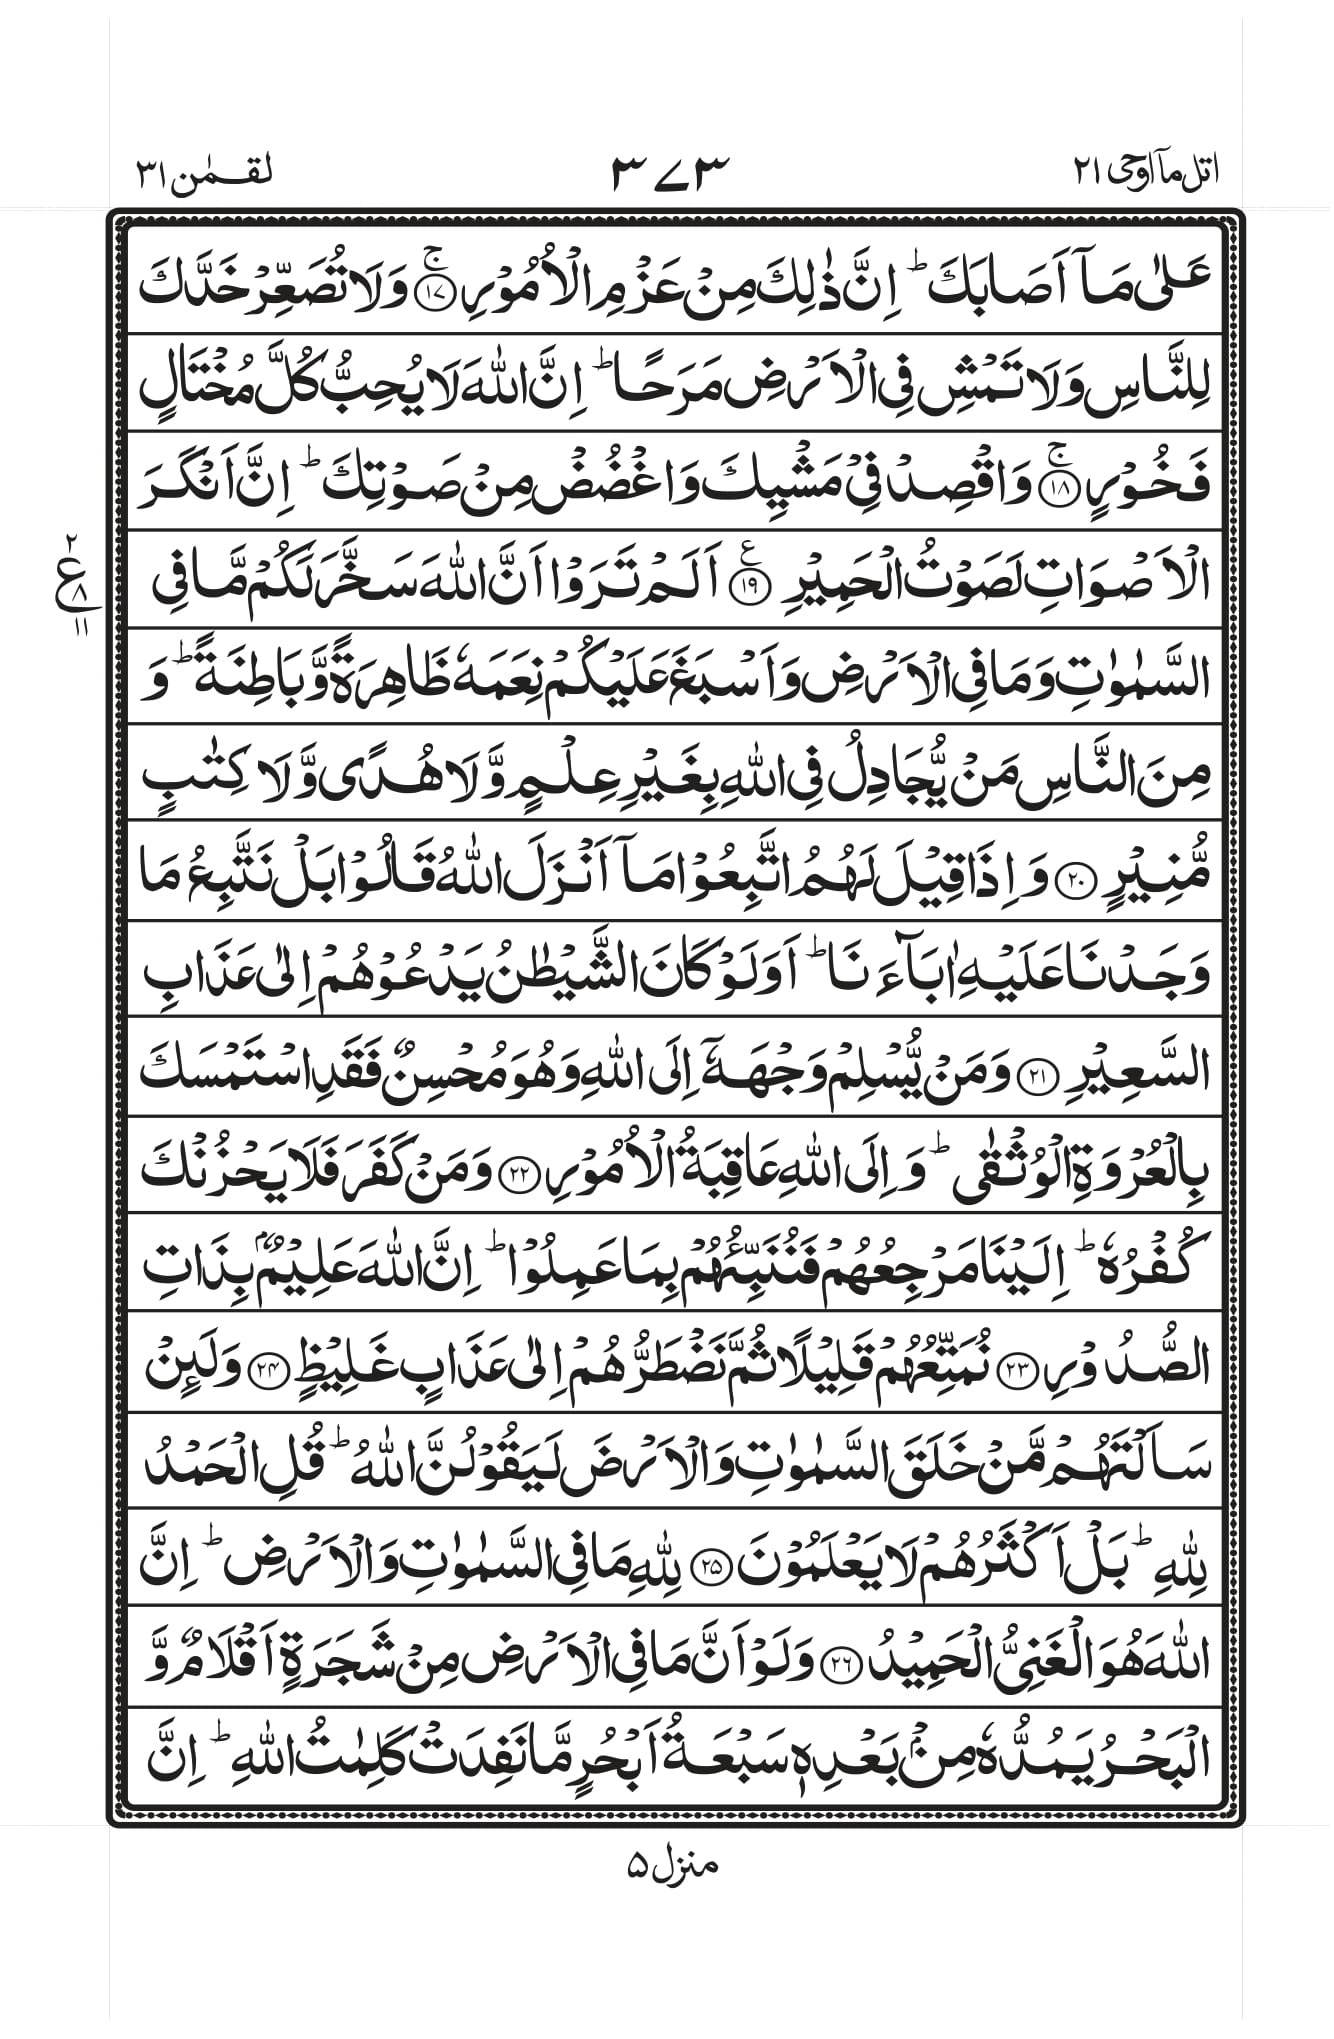 اتل مآ اوحی ۲۱ ۳۷۳ لقمٰن ۳۱
عَلٰی مَاۤ اَصَابَكَ ؕ اِنَّ ذٰلِكَ مِنْ عَزْمِ الْاُمُوْرِ ۚ﴿۱۷﴾ وَلَا تُصَعِّرْ خَدَّكَ
لِلنَّاسِ وَلَا تَمْشِ فِی الْاَرْضِ مَرَحًا ؕ اِنَّ اللّٰهَ لَا یُحِبُّ كُلَّ مُخْتَالٍ
فَخُوْرٍ ۚ﴿۱۸﴾ وَاقْصِدْ فِیْ مَشْیِكَ وَاغْضُضْ مِنْ صَوْتِكَ ؕ اِنَّ اَنْكَرَ
الْاَصْوَاتِ لَصَوْتُ الْحَمِیْرِ ﴿۱۹﴾ ع اَلَمْ تَرَوْا اَنَّ اللّٰهَ سَخَّرَ لَكُمْ مَّا فِی
۲ ع ۸ ۱۱
السَّمٰوٰتِ وَمَا فِی الْاَرْضِ وَاَسْبَغَ عَلَیْكُمْ نِعَمَهٗ ظَاهِرَةً وَّبَاطِنَةً ؕ وَ
مِنَ النَّاسِ مَنْ یُّجَادِلُ فِی اللّٰهِ بِغَیْرِ عِلْمٍ وَّلَا هُدًی وَّلَا كِتٰبٍ
مُّنِیْرٍ ﴿۲۰﴾ وَاِذَا قِیْلَ لَهُمُ اتَّبِعُوْا مَاۤ اَنْزَلَ اللّٰهُ قَالُوْا بَلْ نَتَّبِعُ مَا
وَجَدْنَا عَلَیْهِ اٰبَآءَنَا ؕ اَوَلَوْ كَانَ الشَّیْطٰنُ یَدْعُوْهُمْ اِلٰی عَذَابِ
السَّعِیْرِ ﴿۲۱﴾ وَمَنْ یُّسْلِمْ وَجْهَهٗۤ اِلَی اللّٰهِ وَهُوَ مُحْسِنٌ فَقَدِ اسْتَمْسَكَ
بِالْعُرْوَةِ الْوُثْقٰی ؕ وَاِلَی اللّٰهِ عَاقِبَةُ الْاُمُوْرِ ﴿۲۲﴾ وَمَنْ كَفَرَ فَلَا یَحْزُنْكَ
كُفْرُهٗ ؕ اِلَیْنَا مَرْجِعُهُمْ فَنُنَبِّئُهُمْ بِمَا عَمِلُوْا ؕ اِنَّ اللّٰهَ عَلِیْمٌۢ بِذَاتِ
الصُّدُوْرِ ﴿۲۳﴾ نُمَتِّعُهُمْ قَلِیْلًا ثُمَّ نَضْطَرُّهُمْ اِلٰی عَذَابٍ غَلِیْظٍ ﴿۲۴﴾ وَلَىِٕنْ
سَاَلْتَهُمْ مَّنْ خَلَقَ السَّمٰوٰتِ وَالْاَرْضَ لَیَقُوْلُنَّ اللّٰهُ ؕ قُلِ الْحَمْدُ
لِلّٰهِ ؕ بَلْ اَكْثَرُهُمْ لَا یَعْلَمُوْنَ ﴿۲۵﴾ لِلّٰهِ مَا فِی السَّمٰوٰتِ وَالْاَرْضِ ؕ اِنَّ
اللّٰهَ هُوَ الْغَنِیُّ الْحَمِیْدُ ﴿۲۶﴾ وَلَوْ اَنَّ مَا فِی الْاَرْضِ مِنْ شَجَرَةٍ اَقْلَامٌ وَّ
الْبَحْرُ یَمُدُّهٗ مِنْۢ بَعْدِهٖ سَبْعَةُ اَبْحُرٍ مَّا نَفِدَتْ كَلِمٰتُ اللّٰهِ ؕ اِنَّ
منزل ۵